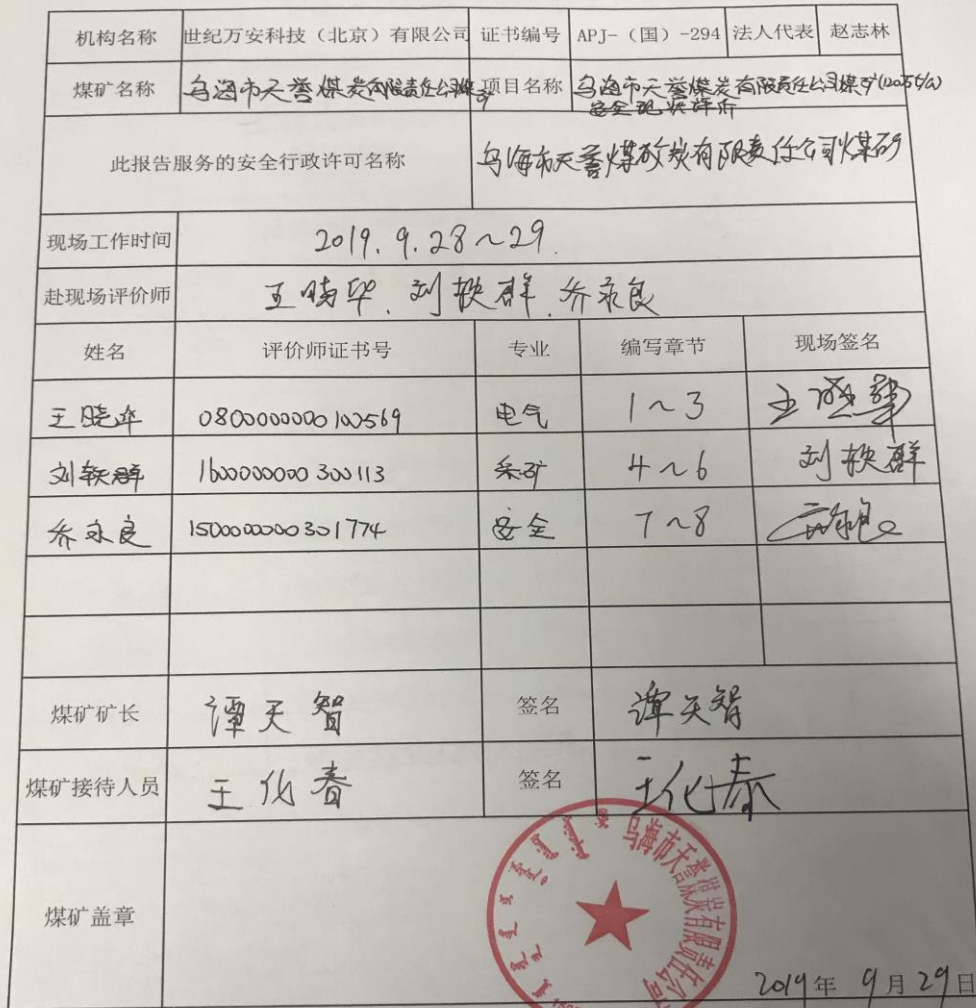 机构名称 世纪万安科技（北京）有限公司 证书编号 APJ-（国）-294 法人代表 赵志林
煤矿名称 乌海市天誉煤炭有限责任公司煤矿 项目名称 乌海市天誉煤炭有限责任公司煤矿
安全现状评价
此报告服务的安全行政许可名称 乌海市天誉煤矿炭有限责任公司煤矿
现场工作时间 2019.9.28～29.
赴现场评价师 王晓华、刘轶群、乔永良
姓名 评价师证书号 专业 编写章节 现场签名
王晓华 0800000000100569 电气 1～3 王晓华
刘轶群 1600000000300113 采矿 4～6 刘轶群
乔永良 1500000000301774 安全 7～8
煤矿矿长 谭天智 签名 谭天智
煤矿接待人员 王化春 签名 王化春
煤矿盖章
乌海市天誉煤炭有限责任公司
2019年 9月29日